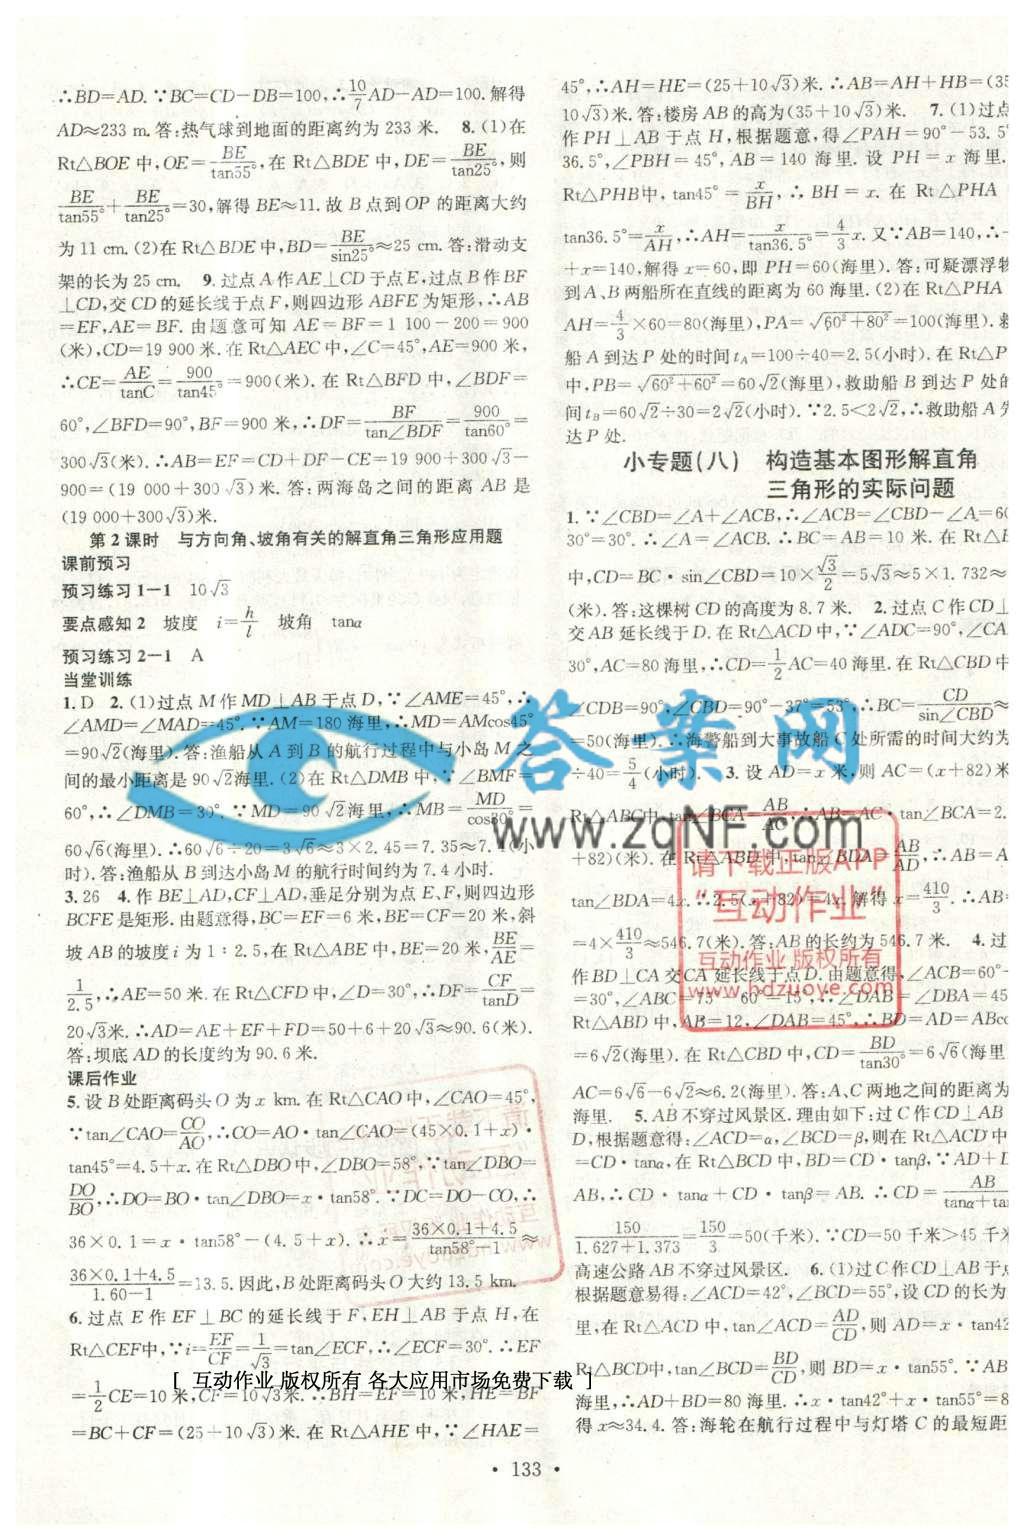 ∴BD=AD.∵BC=CD-DB=100,∴10/7AD-AD=100.解得
AD≈233 m.答:热气球到地面的距离约为 233 米. 8.(1)在
Rt△BOE 中,OE=BE/tan55°,在 Rt△BDE 中,DE=BE/tan25°,则
BE/tan55°+BE/tan25°=30,解得 BE≈11.故 B 点到 OP 的距离大约
为 11 cm.(2)在 Rt△BDE 中,BD=BE/sin25°≈25 cm.答:滑动支
架的长为 25 cm. 9.过点 A 作 AE⊥CD 于点 E,过点 B 作 BF
⊥CD,交 CD 的延长线于点 F,则四边形 ABFE 为矩形,∴AB
=EF,AE=BF.由题意可知 AE=BF=1 100-200=900
(米),CD=19 900 米.在 Rt△AEC 中,∠C=45°,AE=900 米,
∴CE=AE/tanC=900/tan45°=900(米).在 Rt△BFD 中,∠BDF=
60°,∠BFD=90°,BF=900 米,∴DF=BF/tan∠BDF=900/tan60°=
300√3(米).∴AB=EF=CD+DF-CE=19 900+300√3
-900=(19 000+300√3)米.答:两海岛之间的距离 AB 是
(19 000+300√3)米.
第 2 课时 与方向角、坡角有关的解直角三角形应用题
课前预习
预习练习 1-1 10√3
要点感知 2 坡度 i=h/l 坡角 tanα
预习练习 2-1 A
当堂训练
1.D 2.(1)过点 M 作 MD⊥AB 于点 D,∵∠AME=45°,∴
∠AMD=∠MAD=45°.∵AM=180 海里,∴MD=AMcos45°
=90√2(海里).答:渔船从 A 到 B 的航行过程中与小岛 M 之
间的最小距离是 90√2海里.(2)在 Rt△DMB 中,∵∠BMF=
60°,∴∠DMB=30°.∵MD=90√2海里,∴MB=MD/cos30°=
60√6(海里).∴60√6÷20=3√6≈3×2.45=7.35≈7.4(小
时).答:渔船从 B 到达小岛 M 的航行时间约为 7.4 小时.
3.26 4.作 BE⊥AD,CF⊥AD,垂足分别为点 E、F,则四边形
BCFE 是矩形.由题意得,BC=EF=6 米,BE=CF=20 米,斜
坡 AB 的坡度 i 为 1∶2.5,在 Rt△ABE 中,BE=20 米,BE/AE=
1/2.5,∴AE=50 米.在 Rt△CFD 中,∠D=30°,∴DF=CF/tanD=
20√3米.∴AD=AE+EF+FD=50+6+20√3≈90.6(米).
答:坝底 AD 的长度约为 90.6 米.
课后作业
5.设 B 处距离码头 O 为 x km.在 Rt△CAO 中,∠CAO=45°,
∵tan∠CAO=CO/AO,∴CO=AO·tan∠CAO=(45×0.1+x)·
tan45°=4.5+x.在 Rt△DBO 中,∠DBO=58°,∵tan∠DBO=
DO/BO,∴DO=BO·tan∠DBO=x·tan58°.∵DC=DO-CO,∴
36×0.1=x·tan58°-(4.5+x).∴x=36×0.1+4.5/tan58°-1≈
36×0.1+4.5/1.60-1=13.5.因此,B 处距离码头 O 大约 13.5 km.
6.过点 E 作 EF⊥BC 的延长线于 F,EH⊥AB 于点 H,在
Rt△CEF中,∵i=EF/CF=1/√3=tan∠ECF,∴∠ECF=30°.∴EF
=1/2CE=10米,CF=10√3米.∴BH=EF=10米,HE=BF
=BC+CF=(25+10√3)米.在 Rt△AHE 中,∵∠HAE=
45°,∴AH=HE=(25+10√3)米.∴AB=AH+HB=(35
10√3)米.答:楼房 AB 的高为(35+10√3)米. 7.(1)过点
作 PH⊥AB 于点 H,根据题意,得∠PAH=90°-53.5°
36.5°,∠PBH=45°,AB=140 海里.设 PH=x 海里.
Rt△PHB中,tan45°=x/BH,∴BH=x.在 Rt△PHA
tan36.5°=x/AH,∴AH=x/tan36.5°=4/3x.又∵AB=140,∴
+x=140,解得 x=60,即 PH=60(海里).答:可疑漂浮物
到 A、B 两船所在直线的距离为 60 海里.(2)在 Rt△PHA
AH=4/3×60=80(海里),PA=√60²+80²=100(海里).救
船 A 到达 P 处的时间 tA=100÷40=2.5(小时).在 Rt△P
中,PB=√60²+60²=60√2(海里),救助船 B 到达 P 处的
间 tB=60√2÷30=2√2(小时).∵2.5<2√2,∴救助船 A 先
达 P 处.
小专题(八) 构造基本图形解直角
三角形的实际问题
1.∵∠CBD=∠A+∠ACB,∴∠ACB=∠CBD-∠A=60
30°=30°.∴∠A=∠ACB.∴BC=AB=10 米.在 Rt△B
中,CD=BC·sin∠CBD=10×√3/2=5√3≈5×1.732≈
(米).答:这棵树 CD 的高度为 8.7 米. 2.过点 C 作 CD⊥
交 AB 延长线于 D.在 Rt△ACD 中,∵∠ADC=90°,∠CA
30°,AC=80 海里,∴CD=1/2AC=40 海里.在 Rt△CBD中
∠CDB=90°,∠CBD=90°-37°=53°,∴BC=CD/sin∠CBD≈
=50(海里).∴海警船到大事故船 C 处所需的时间大约为
÷40=5/4(小时). 3.设 AD=x 米,则 AC=(x+82)米
Rt△ABC中,tan∠BCA=AB/AC,∴AB=AC·tan∠BCA=2.
+82)(米).在 Rt△ABD 中,tan∠BDA=AB/AD,∴AB=A
tan∠BDA=4x.∴2.5(x+82)=4x.解得 x=410/3.∴AB
=4×410/3≈546.7(米).答:AB 的长约为 546.7 米. 4.过
作 BD⊥CA 交 CA 延长线于点 D.由题意得,∠ACB=60°-
=30°,∠ABC=75°-60°=15°,∴∠DAB=∠DBA=45
Rt△ABD 中,AB=12,∠DAB=45°,∴BD=AD=ABco
=6√2(海里).在 Rt△CBD 中,CD=BD/tan30°=6√6(海里
AC=6√6-6√2≈6.2(海里).答:A、C 两地之间的距离为
海里. 5.AB 不穿过风景区.理由如下:过 C 作 CD⊥AB
D,根据题意得:∠ACD=α,∠BCD=β,则在 Rt△ACD 中
=CD·tanα,在 Rt△BCD 中,BD=CD·tanβ,∵AD+D
AB,∴CD·tanα+CD·tanβ=AB.∴CD=AB/tanα+ta
150/1.627+1.373=150/3=50(千米).∵CD=50 千米>45 千米
高速公路 AB 不穿过风景区. 6.(1)过 C 作 CD⊥AB 于点
根据题意易得:∠ACD=42°,∠BCD=55°,设 CD 的长为
里,在 Rt△ACD 中,tan∠ACD=AD/CD,则 AD=x·tan42
Rt△BCD中,tan∠BCD=BD/CD,则 BD=x·tan55°.∵AB
海里,∴AD+BD=80 海里.∴x·tan42°+x·tan55°=8
得 x≈34.4.答:海轮在航行过程中与灯塔 C 的最短距
[ 互动作业 版权所有 各大应用市场免费下载 ]
• 133 •
答案网
www.zqNF.com
请下载正版APP
“互动作业”
互动作业 版权所有
www.hdzuoye.com